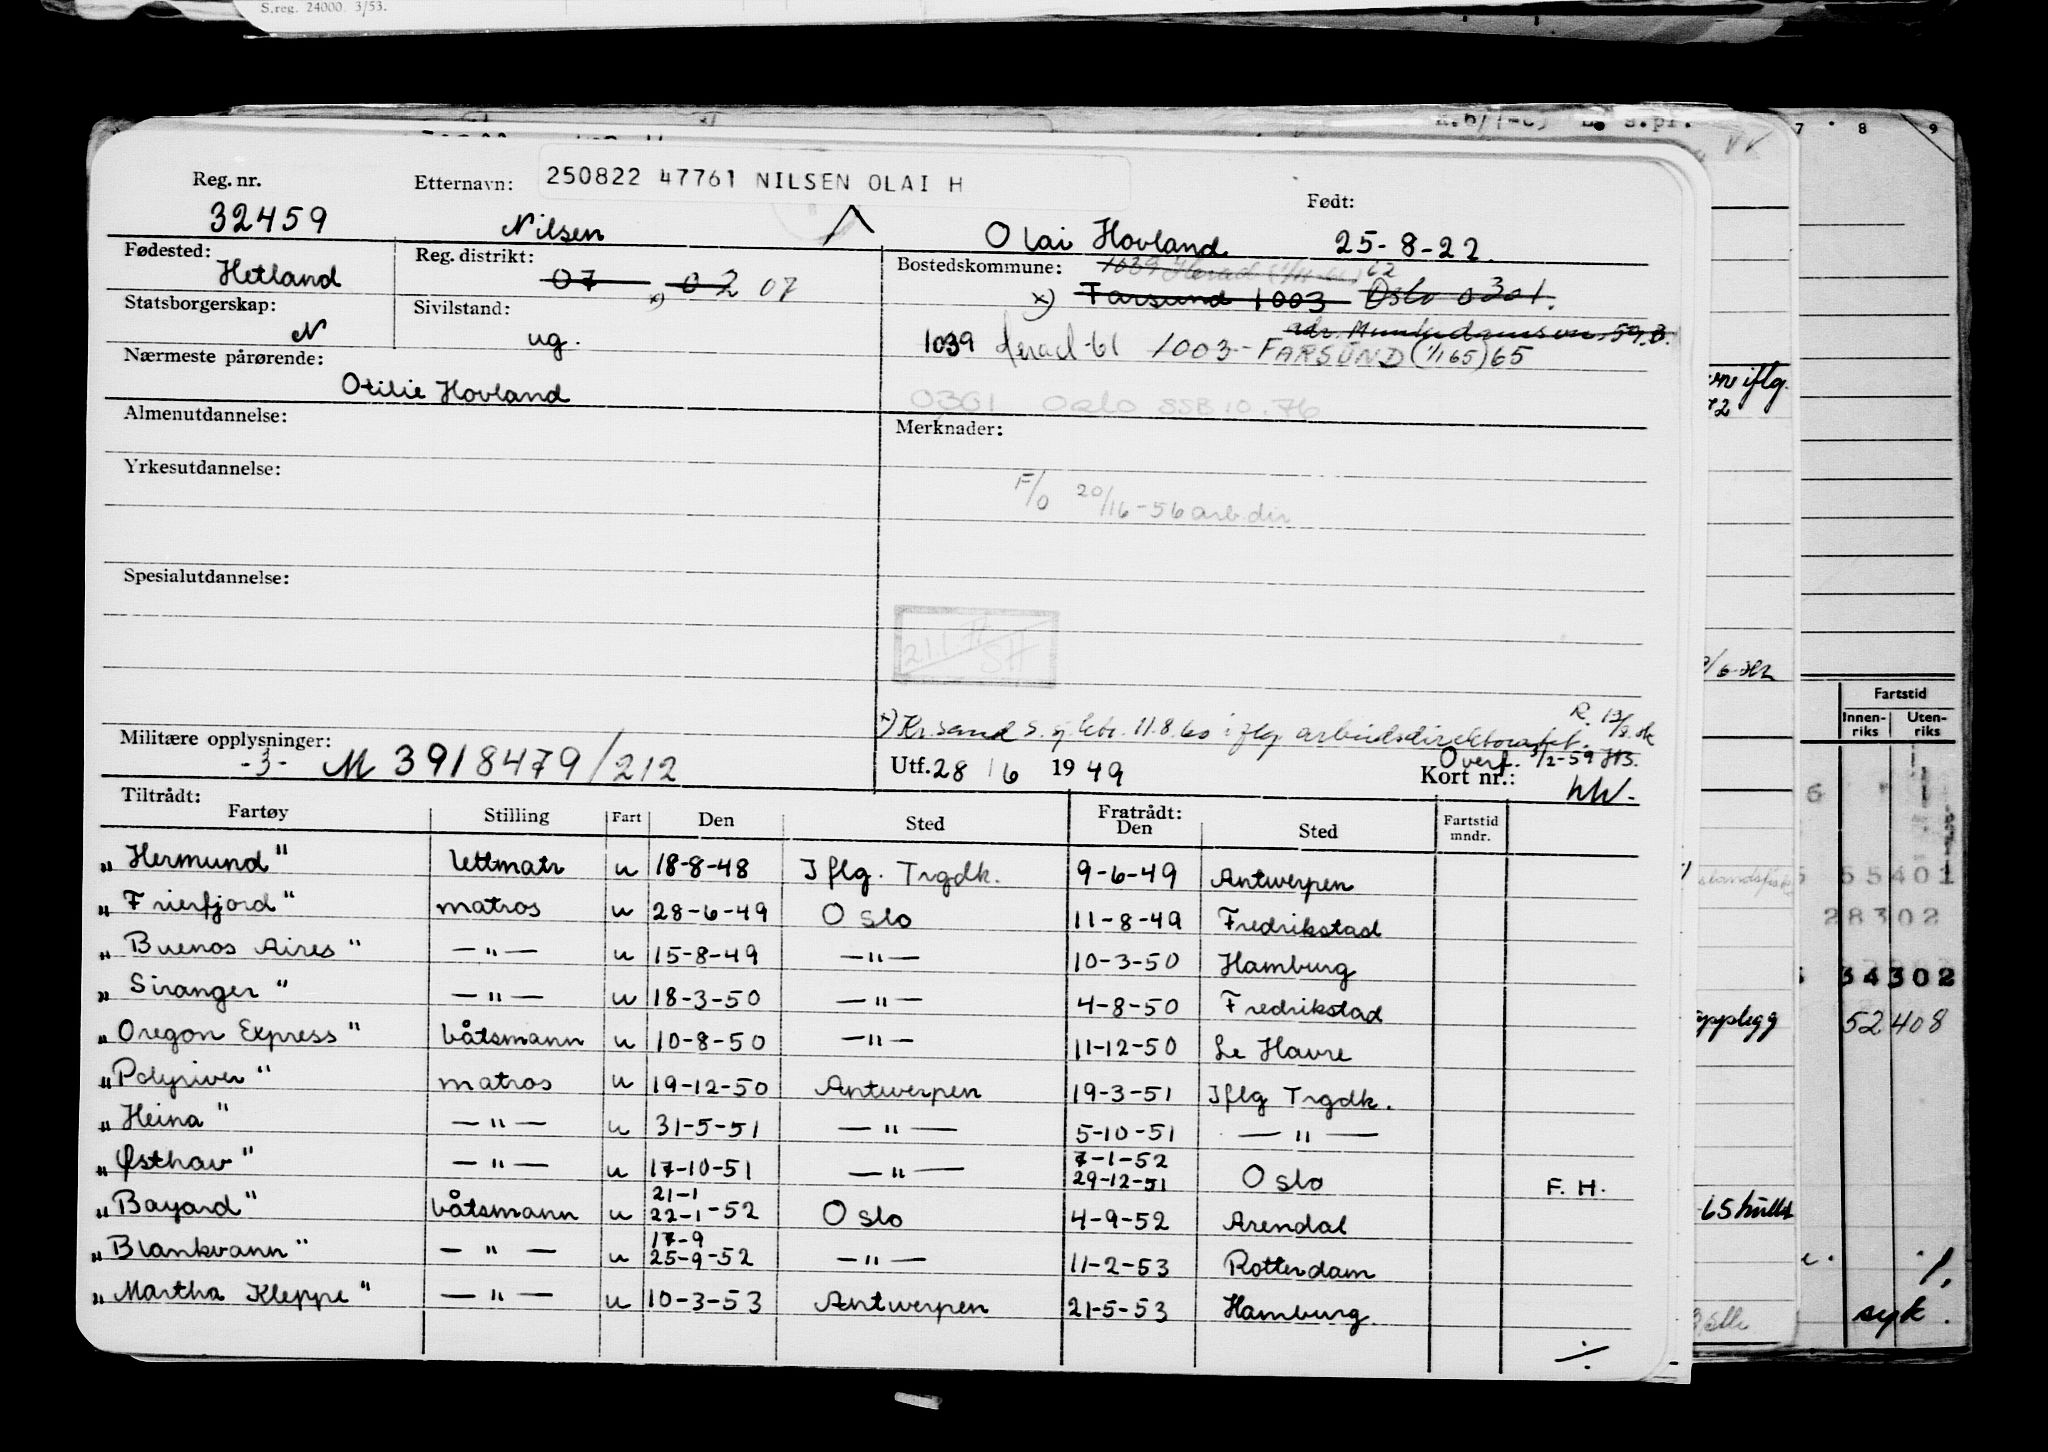 S.reg. 24000. 3/53.
7 8 9
Reg. nr. Etternavn: 250822 47761 NILSEN OLAI H Født:
32459 Nilsen Olai Hovland 25-8-22.
Fødested: Hetland Reg. distrikt: 07 x) 02 07 Bostedskommune: 1039 Herad 62
x) Farsund 1003 Oslo 0301.
Statsborgerskap: N Sivilstand: ug. adr. Munkedamsvn. 59.B.
1039 Herad -61 1003 - FARSUND (1/1 65) 65
Nærmeste pårørende:
Otilie Hovland
0301 Oslo SSB 10.76
Almenutdannelse: Merknader:
Yrkesutdannelse:
F/O 20/16-56 arb.dir
Spesialutdannelse:
x) Kr.sand S. sj.ktr. 11.8.60 iflg arbeidsdirektoratet.
Militære opplysninger: Overf. 1/2-59
-3- M 3918479/212 Utf. 28/6 1949 Kort nr.:
Tiltrådt:
Fartøy Stilling Fart Den Sted Fratrådt: Den Sted Fartstid mndr.
"Hermund" lettmatr u 18-8-48 Iflg. Trgdk. 9-6-49 Antwerpen
"Frierfjord" matros u 28-6-49 Oslo 11-8-49 Fredrikstad
"Buenos Aires" —"— u 15-8-49 —"— 10-3-50 Hamburg
"Siranger" —"— u 18-3-50 —"— 4-8-50 Fredrikstad
"Oregon Express" båtsmann u 10-8-50 —"— 11-12-50 Le Havre
"Polyriver" matros u 19-12-50 Antwerpen 19-3-51 Iflg Trgdk.
"Heina" —"— u 31-5-51 —"— 5-10-51 —"—
"Østhav" —"— u 17-10-51 —"— 7-1-52 29-12-51 Oslo F. H.
"Bayard" båtsmann u 21-1 22-1-52 Oslo 4-9-52 Arendal
"Blankvann" —"— u 17-9 25-9-52 —"— 11-2-53 Rotterdam
"Martha Kleppe" —"— u 10-3-53 Antwerpen 21-5-53 Hamburg.
Fartstid
Innen- riks Uten- riks
55401
28302
34302
52408
syk.